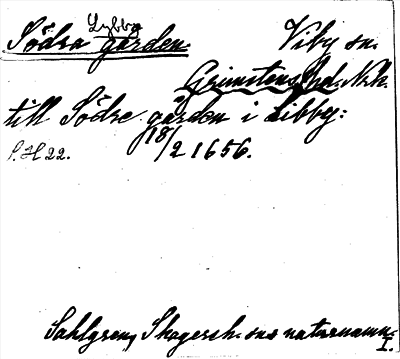 Lybby
Södra gården. Viby sn.
Grimstens hd. Nrk.
till Södre gården i Libby:
S. H 22. 18/2 1656.
Sahlgren, Skagersh. sns naturnamn.
I.